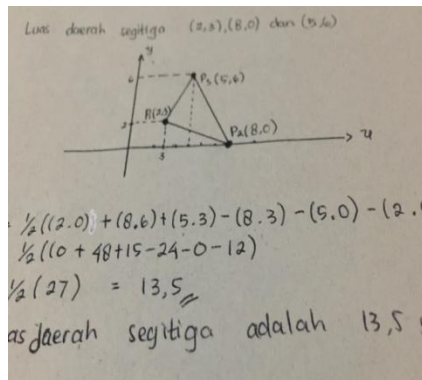 Luas daerah segitiga (2,3),(8,0) dan (5,6)
y
6
P3 (5,6)
P1(2,3)
2
P2(8,0)
3
x
= ½((2.0) + (8.6) + (5.3) - (8.3) - (5.0) - (2.
½((0 + 48 + 15 - 24 - 0 - 12)
½ (27) = 13,5
as daerah segitiga adalah 13,5